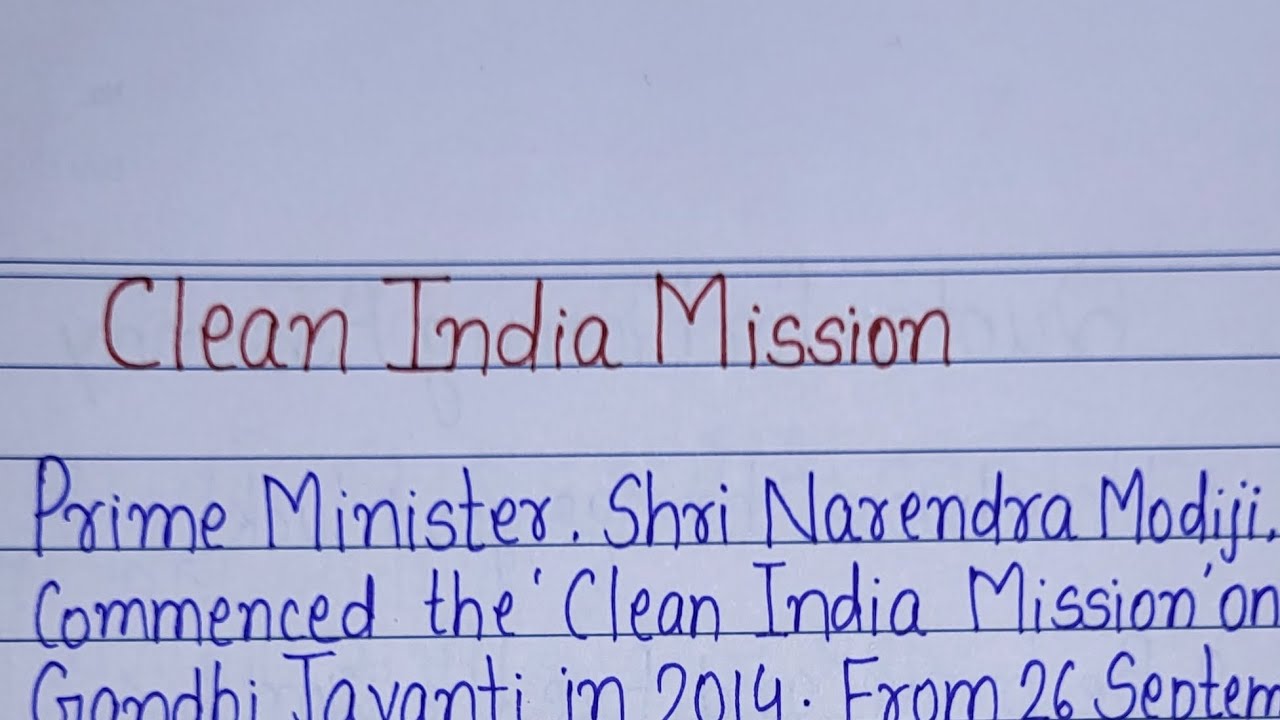 Clean India Mission
Prime Minister. Shri Narendra Modiji,
Commenced the 'Clean India Mission' on
Gandhi Jayanti in 2014. From 26 Septem